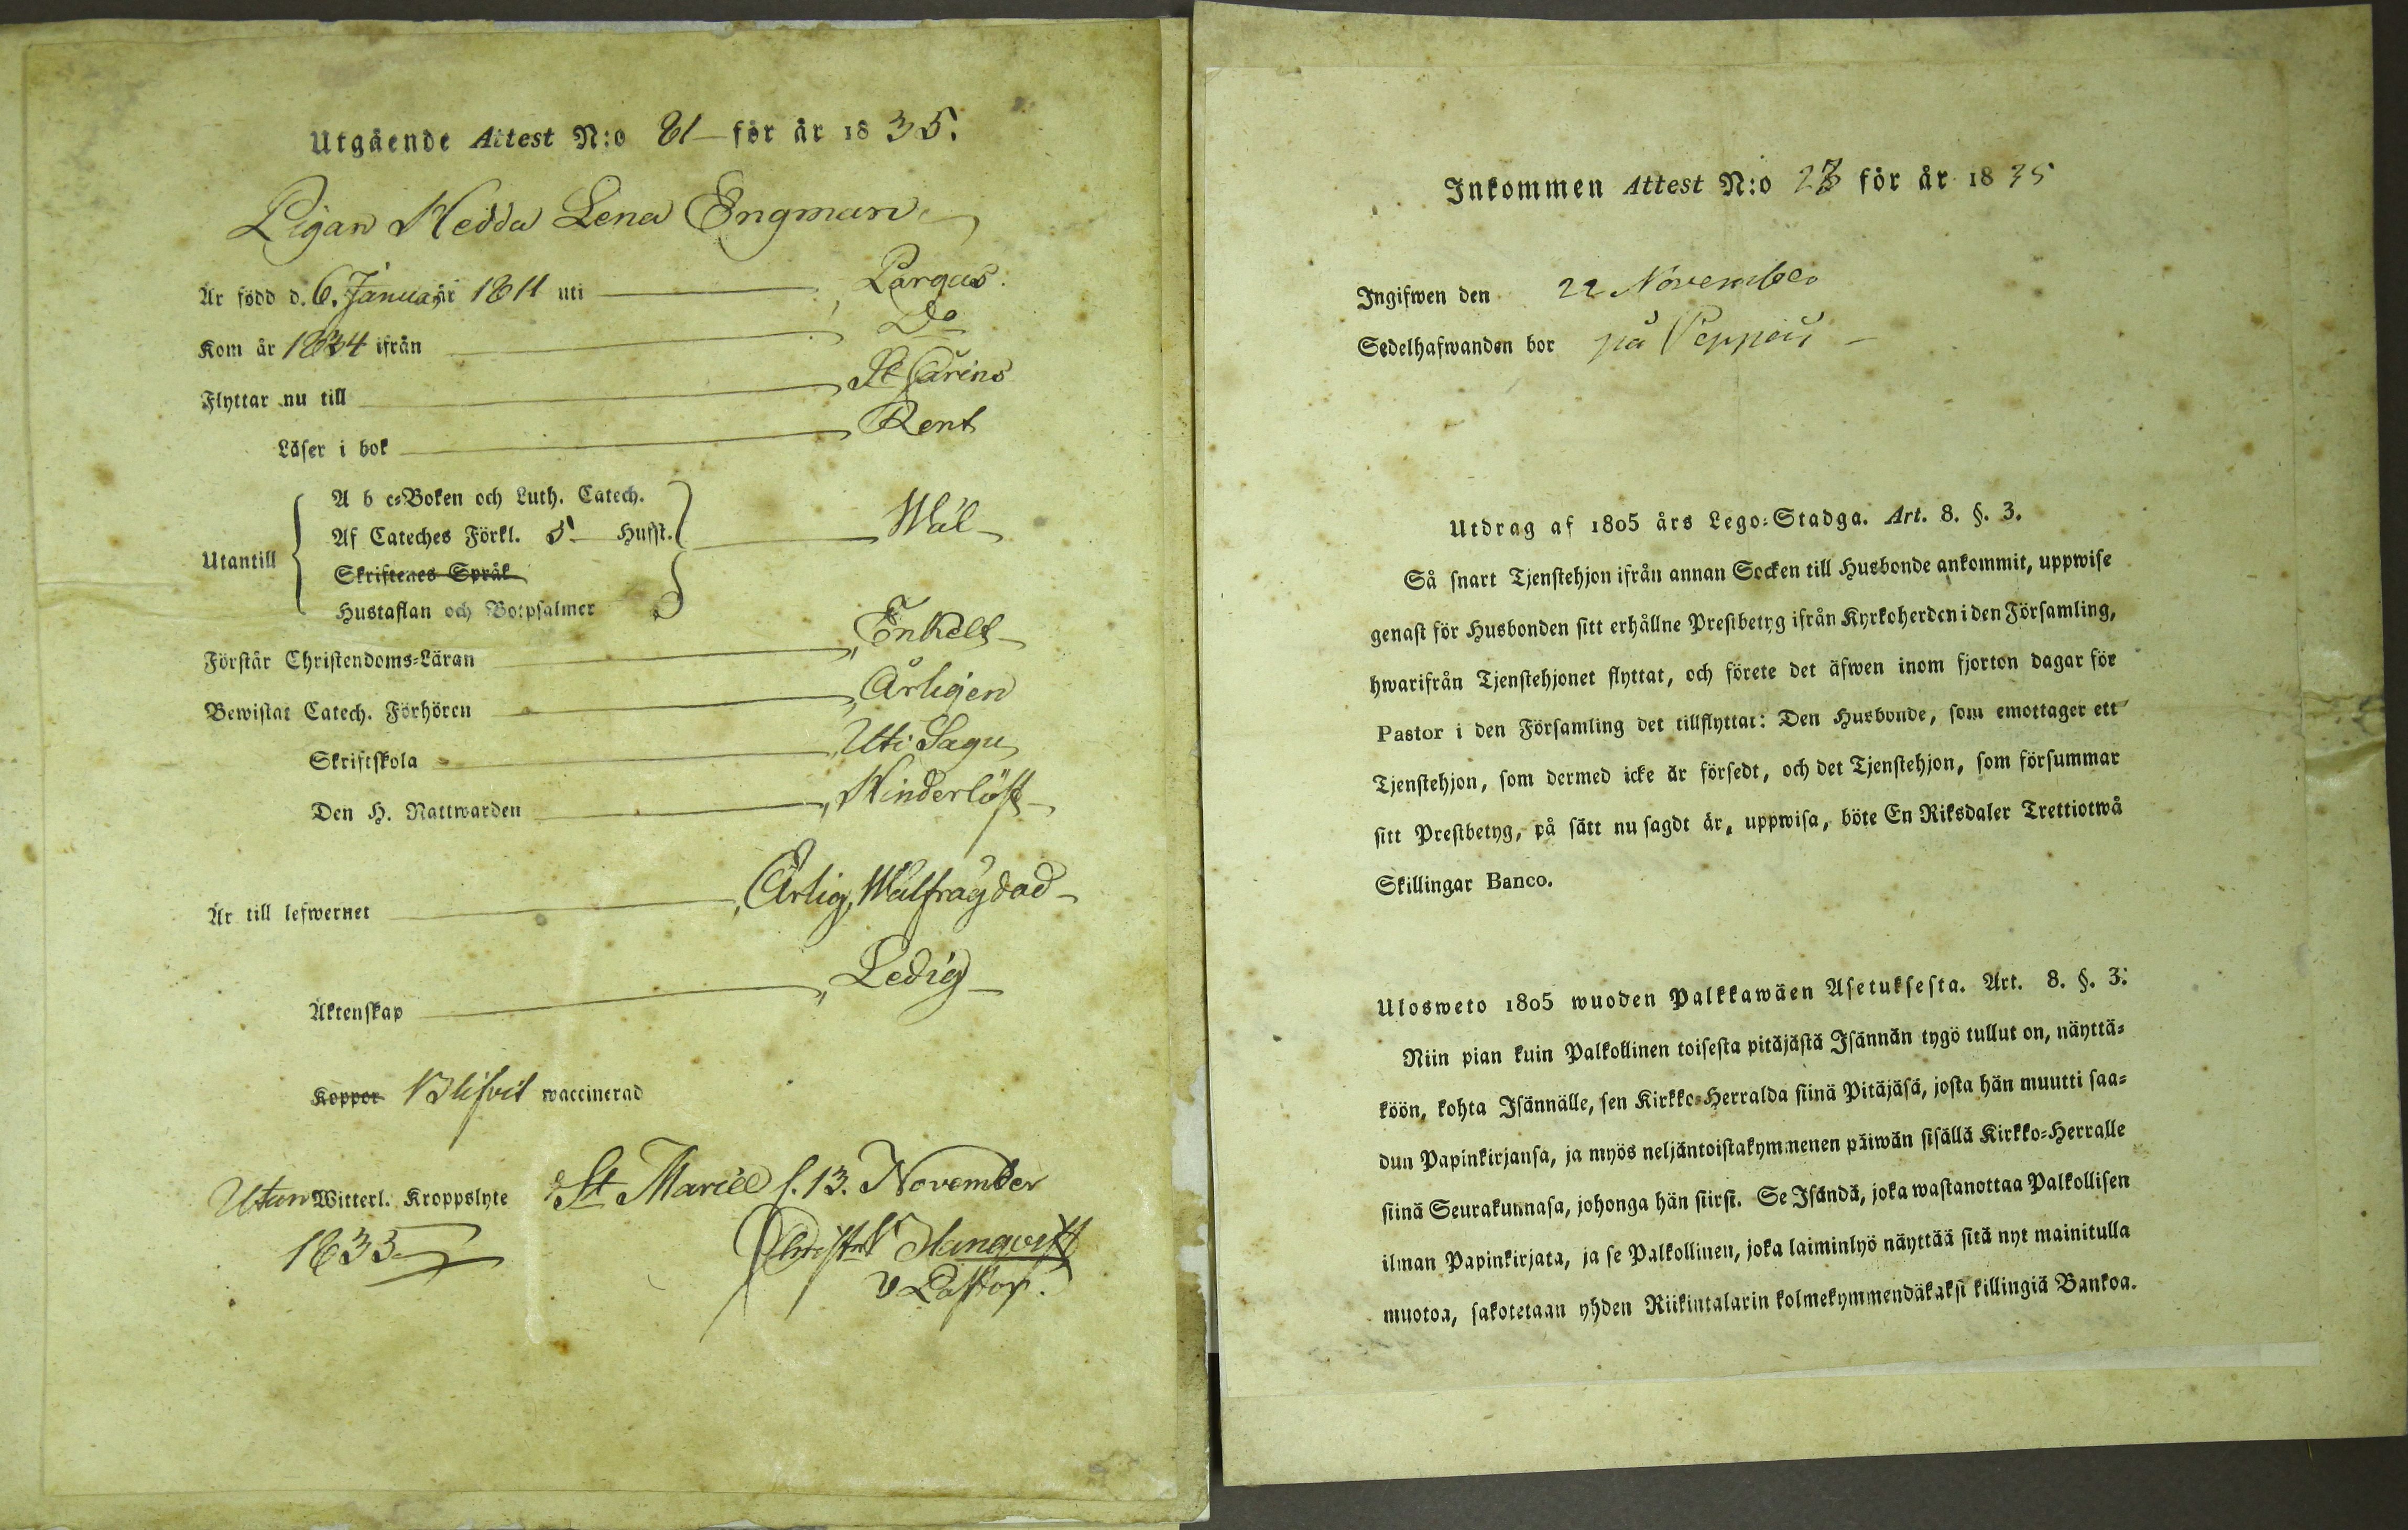 Utgående Attest N:o 81 för år 1835.
Pigan Hedda Lena Engman
Är född d. 6. Januarii 1811 uti Pargas.
Kom år 1834 ifrån Do
Flyttar nu till St Carins
Läser i bok Rent
A b c-Boken och Luth. Catech.
Af Cateches Förkl. 5 Hufst.
Utantill Wäl
Skriftenes Språk
Hustaflan och Botpsalmer
Förstår Christendoms-Läran Enkelt
Bewistat Catech. Förhören Årligen
Skriftskola Uti Sagu
Den H. Nattwarden Hinderlöst
Är till lefwernet Ärlig, Wälfrägdad
Äktenskap Ledig
Koppor Blifvit waccinerad
Utan Witterl. Kroppslyte St Mariæ d. 13. November
1835
Hanqvist
v Pastor.
Inkommen Attest N:o för år 1835
Ingifwen den 22 November
Sedelhafwanden bor på
Utdrag af 1805 års Lego-Stadga. Art. 8. §. 3.
Så snart Tjenstehjon ifrån annan Socken till Husbonde ankommit, uppwise
genast för Husbonden sitt erhållne Prestbetyg ifrån Kyrkoherden i den Församling,
hwarifrån Tjenstehjonet flyttat, och förete det äfwen inom fjorton dagar för
Pastor i den Församling det tillflyttat: Den Husbonde, som emottager ett
Tjenstehjon, som dermed icke är försedt, och det Tjenstehjon, som försummar
sitt Prestbetyg, på sätt nu sagdt är, uppwisa, böte En Riksdaler Trettiotwå
Skillingar Banco.
Ulosweto 1805 wuoden Palkkawäen Asetuksesta. Art. 8. §. 3.
Niin pian kuin Palkollinen toisesta pitäjästä Isännän tygö tullut on, näyttä-
köön, kohta Isännälle, sen Kirkko-Herralda siinä Pitäjäsä, josta hän muutti saa-
dun Papinkirjansa, ja myös neljäntoistakymmenen päiwän sisällä Kirkko-Herralle
siinä Seurakunnasa, johonga hän siirsi. Se Isändä, joka wastanottaa Palkollisen
ilman Papinkirjata, ja se Palkollinen, joka laiminlyö näyttää sitä nyt mainitulla
muotoa, sakotetaan yhden Riikintalarin kolmekymmendäkaksi killingiä Bankoa.